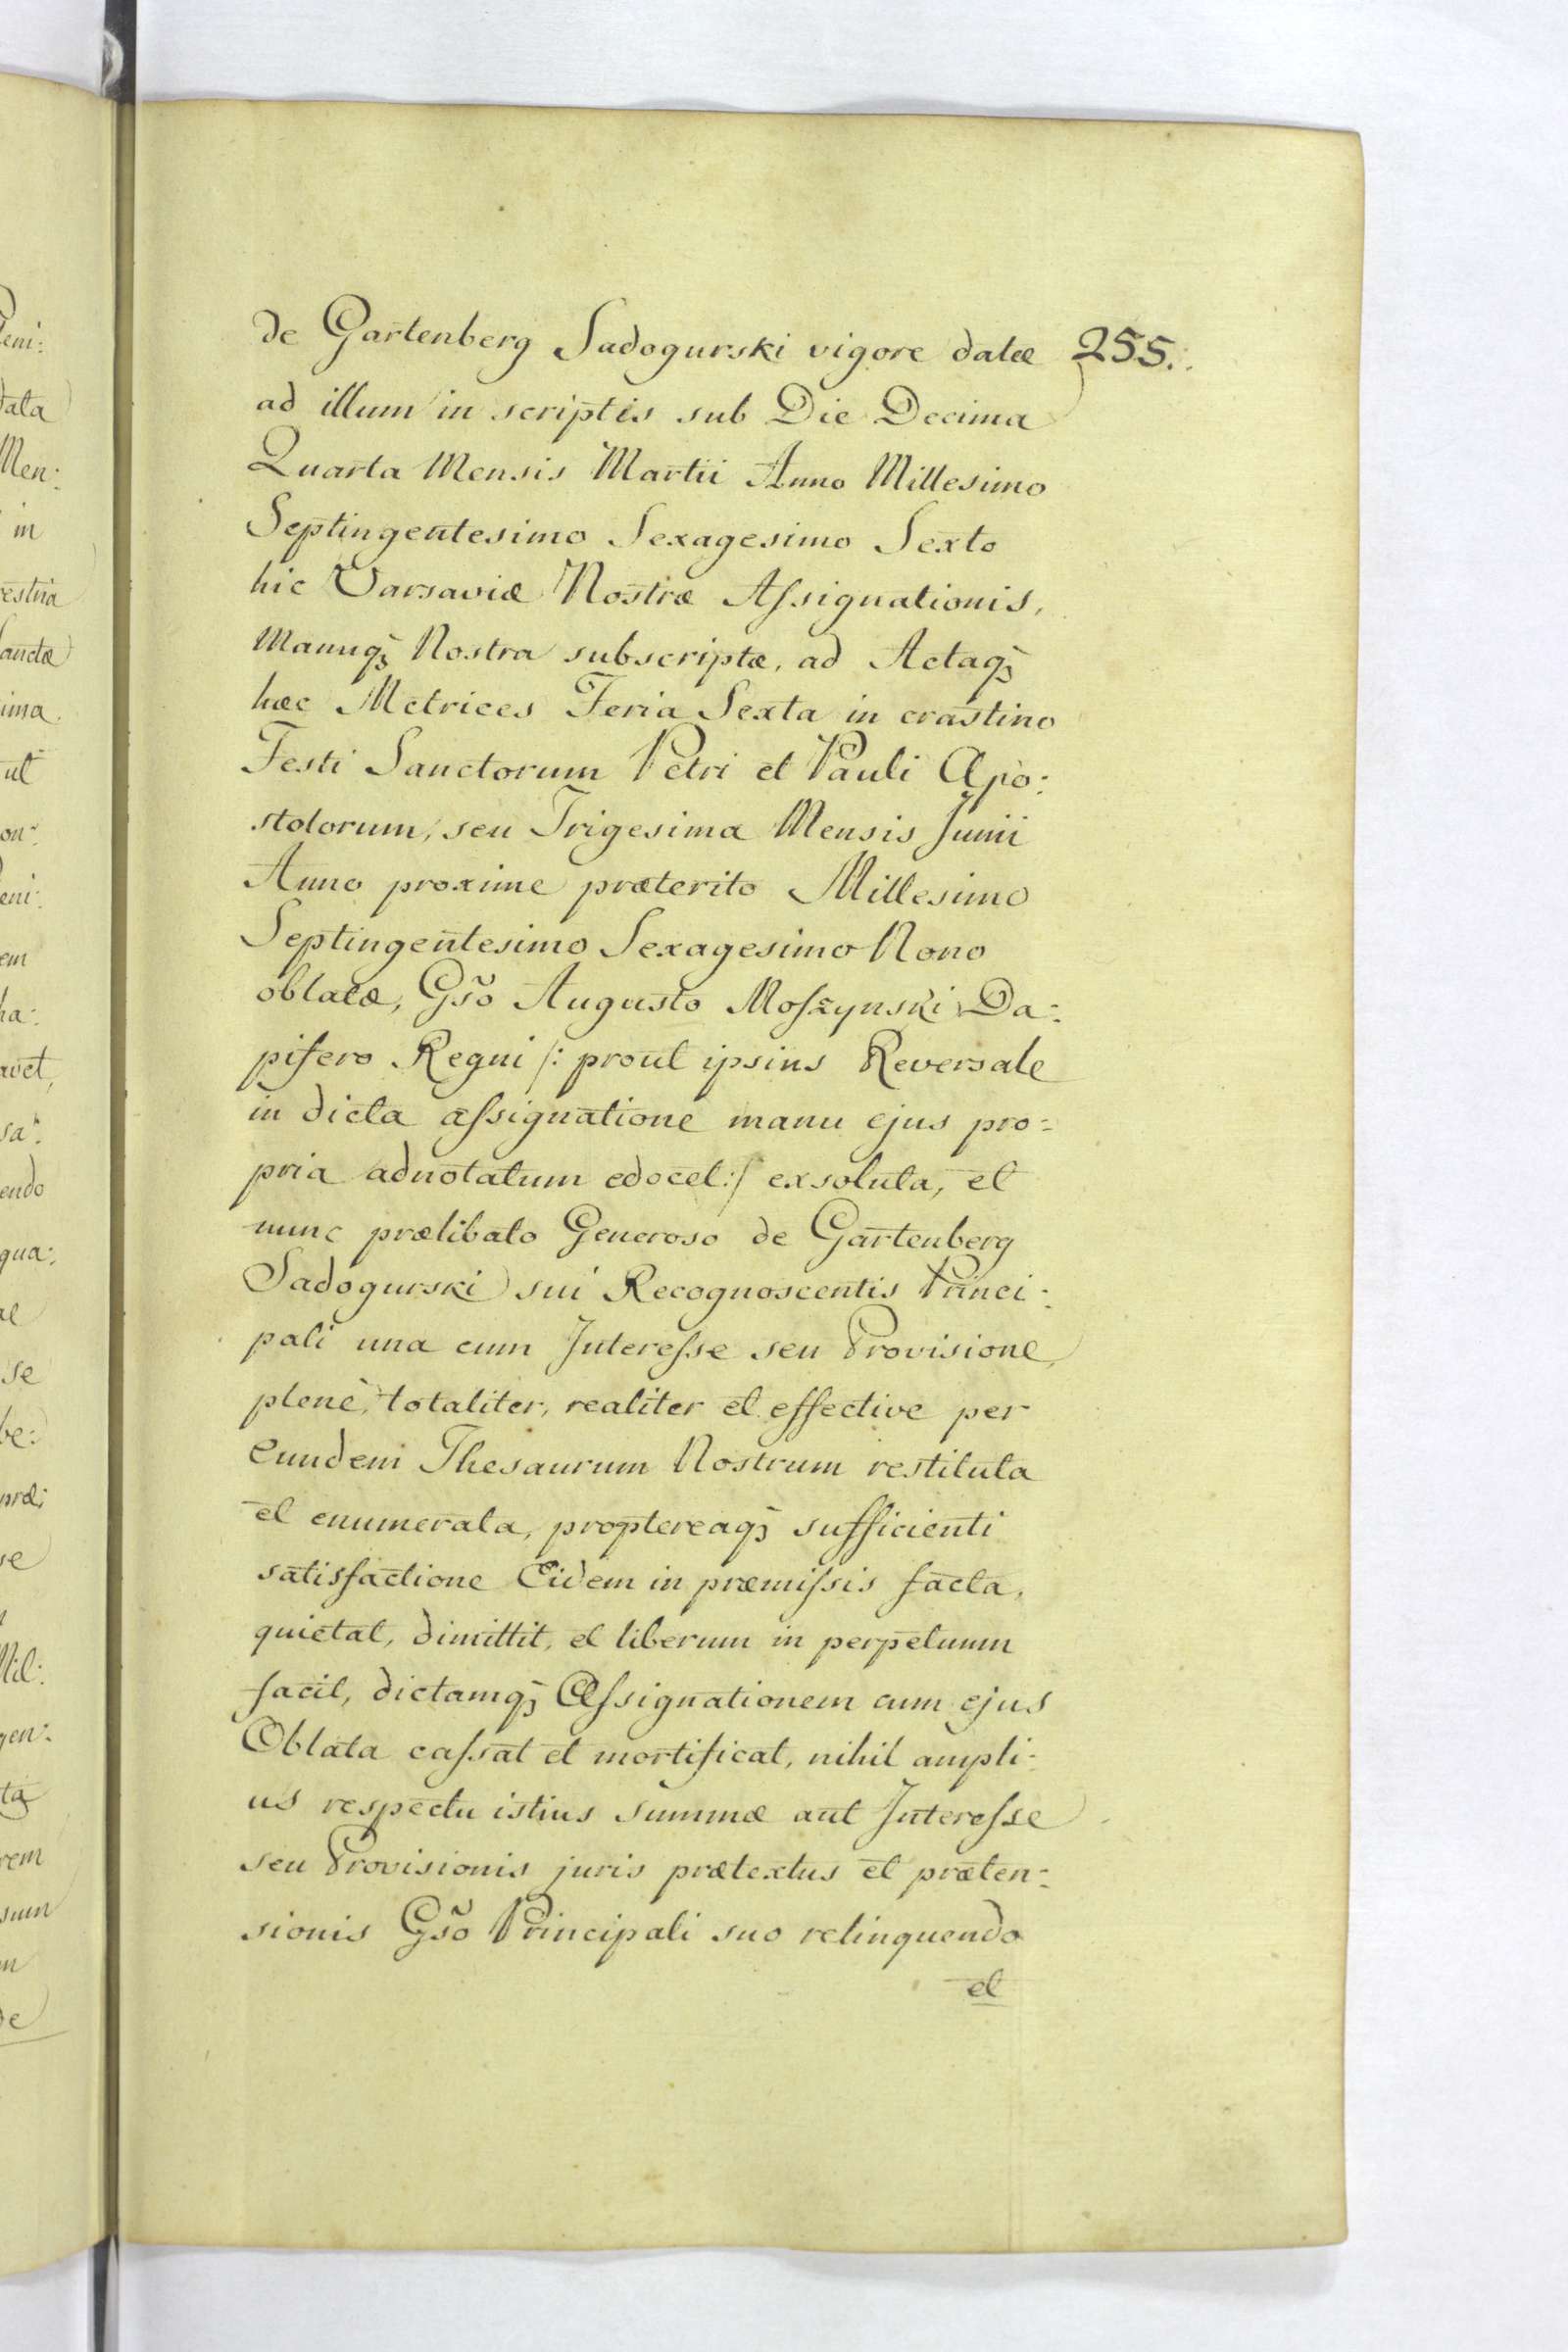 de Gartenberg Sadogurski vigore datæ 255.
ad illum in scriptis sub Die Decima
Quarta Mensis Martii Anno Millesimo
Septingentesimo Sexagesimo Sexto
hic Varsaviæ Nostræ Aſsignationis,
Manuqꝫ Nostra subscriptæ, ad Actaqꝫ
hæc Metrices Feria Sexta in crastino
Festi Sanctorum Petri et Pauli Apo:
stolorum, seu Trigesima Mensis Junii
Anno proxime præterito Millesimo
Septingentesimo Sexagesimo Nono
oblatæ, Gs̃o Augusto Moſzynski Da:
pifero Regni /: prout ipsius Reversale
in dicta aſsignatione manu ejus pro:
pria adnotatum edocet :/ exsoluta, et
nunc prælibato Generoso de Gartenberg
Sadogurski sui Recognoscentis Princi:
pali una cum Intereſse seu Provisione,
plenè, totaliter, realiter et effective per
Eundem Thesaurum Nostrum restituta
et enumerata, proptereaqꝫ sufficienti
satisfactione Eidem in præmiſsis facta,
quietat, dimittit, et liberum in perpetuum
facit, dictamqꝫ Aſsignationem cum ejus
Oblata caſsat et mortificat, nihil ampli:
us respectu istius summæ aut Intereſse
seu Provisionis juris prætextus et præten:
sionis Gs̃o Principali suo relinquendo
et
eni:
data
Men:
in
estria
Sanctæ
ima
ut
on:
eni:
em
ha:
avet,
sa:
endo
qua:
se
be:
se
Mil:
gen:
ta
rem
sum
de